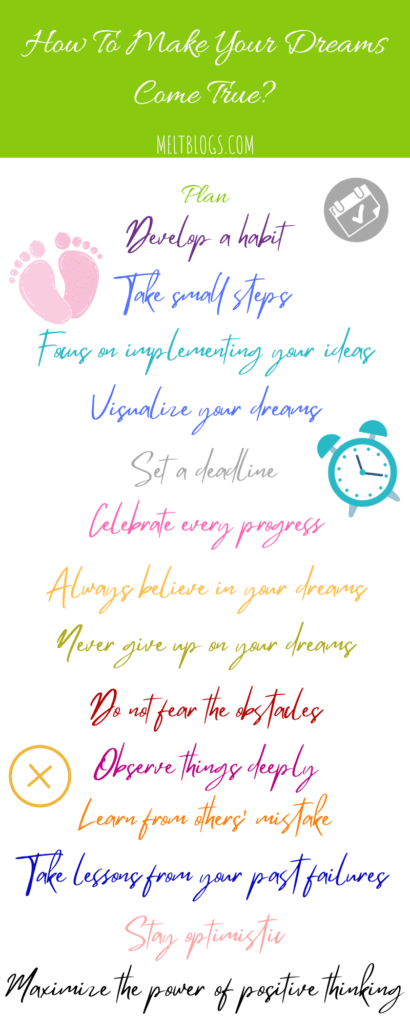 How To Make Your Dreams
Come True?
MELTBLOGS.COM
Plan
Develop a habit
Take small steps
Focus on implementing your ideas
Visualize your dreams
Set a deadline
Celebrate every progress
Always believe in your dreams
Never give up on your dreams
Do not fear the obstacles
Observe things deeply
Learn from others' mistake
Take lessons from your past failures
Stay optimistic
Maximize the power of positive thinking